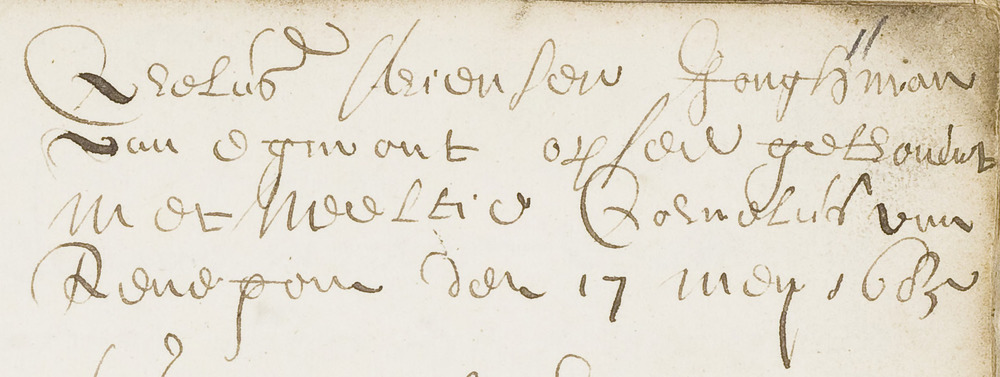 Crelis Ariensen Jonghman
van egmont op see getrouwt
Met Neeltie Cornelis van
Renepom den 17 mey 1683